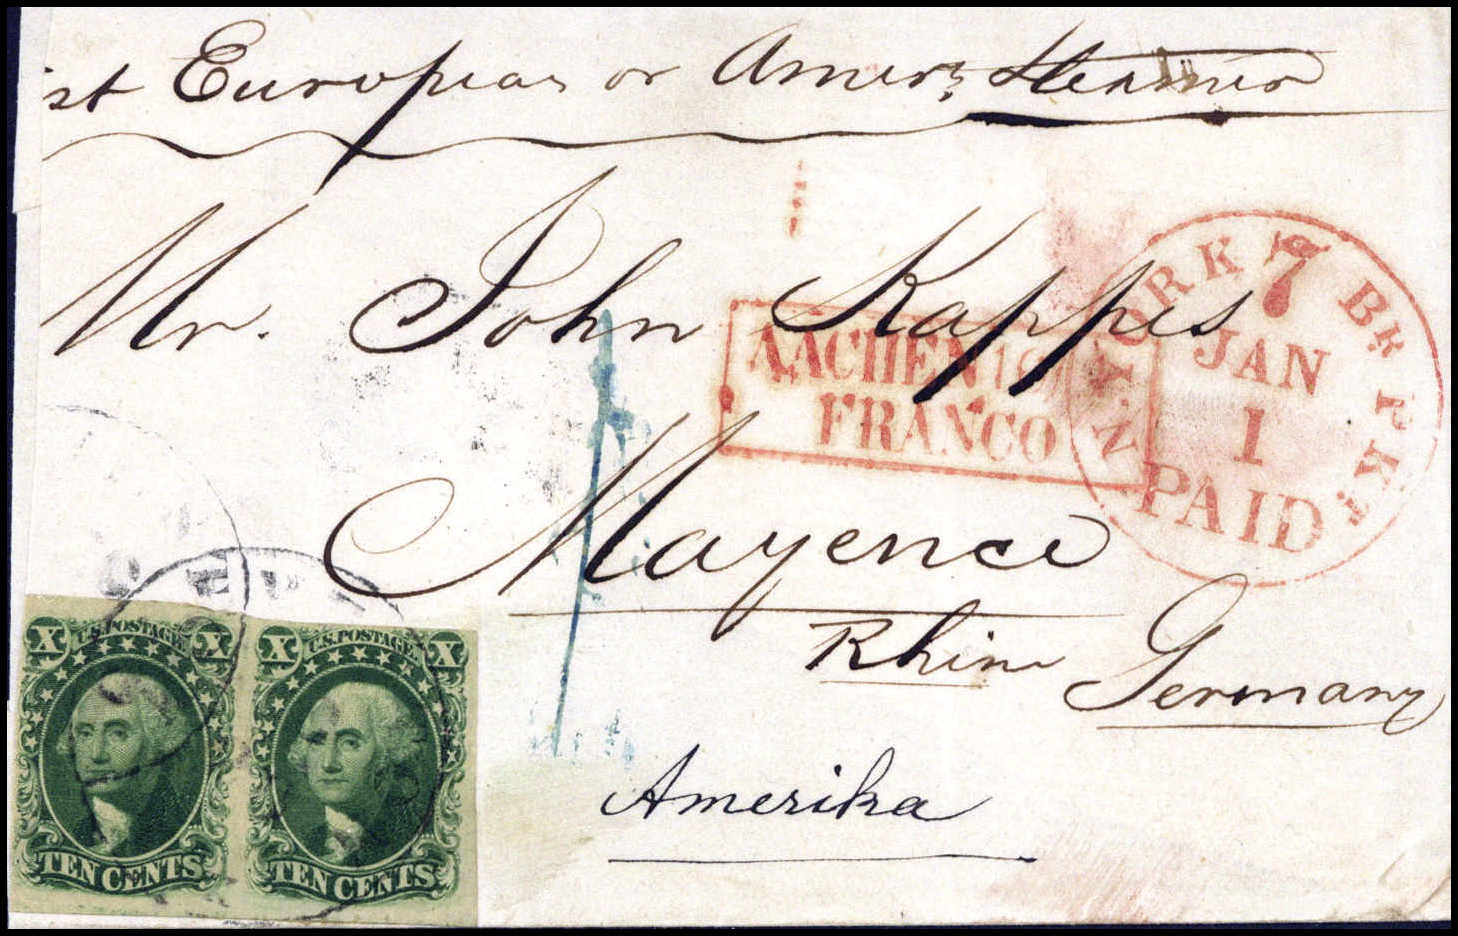 st European or Amer. Steamer
Mr. John Kappis
AACHEN
FRANCO
N. YORK Br PKt
7
JAN
1
PAID
Mayence
Rhin Germany
Amerika
X U.S. POSTAGE. X
TEN CENTS
X U.S. POSTAGE. X
TEN CENTS